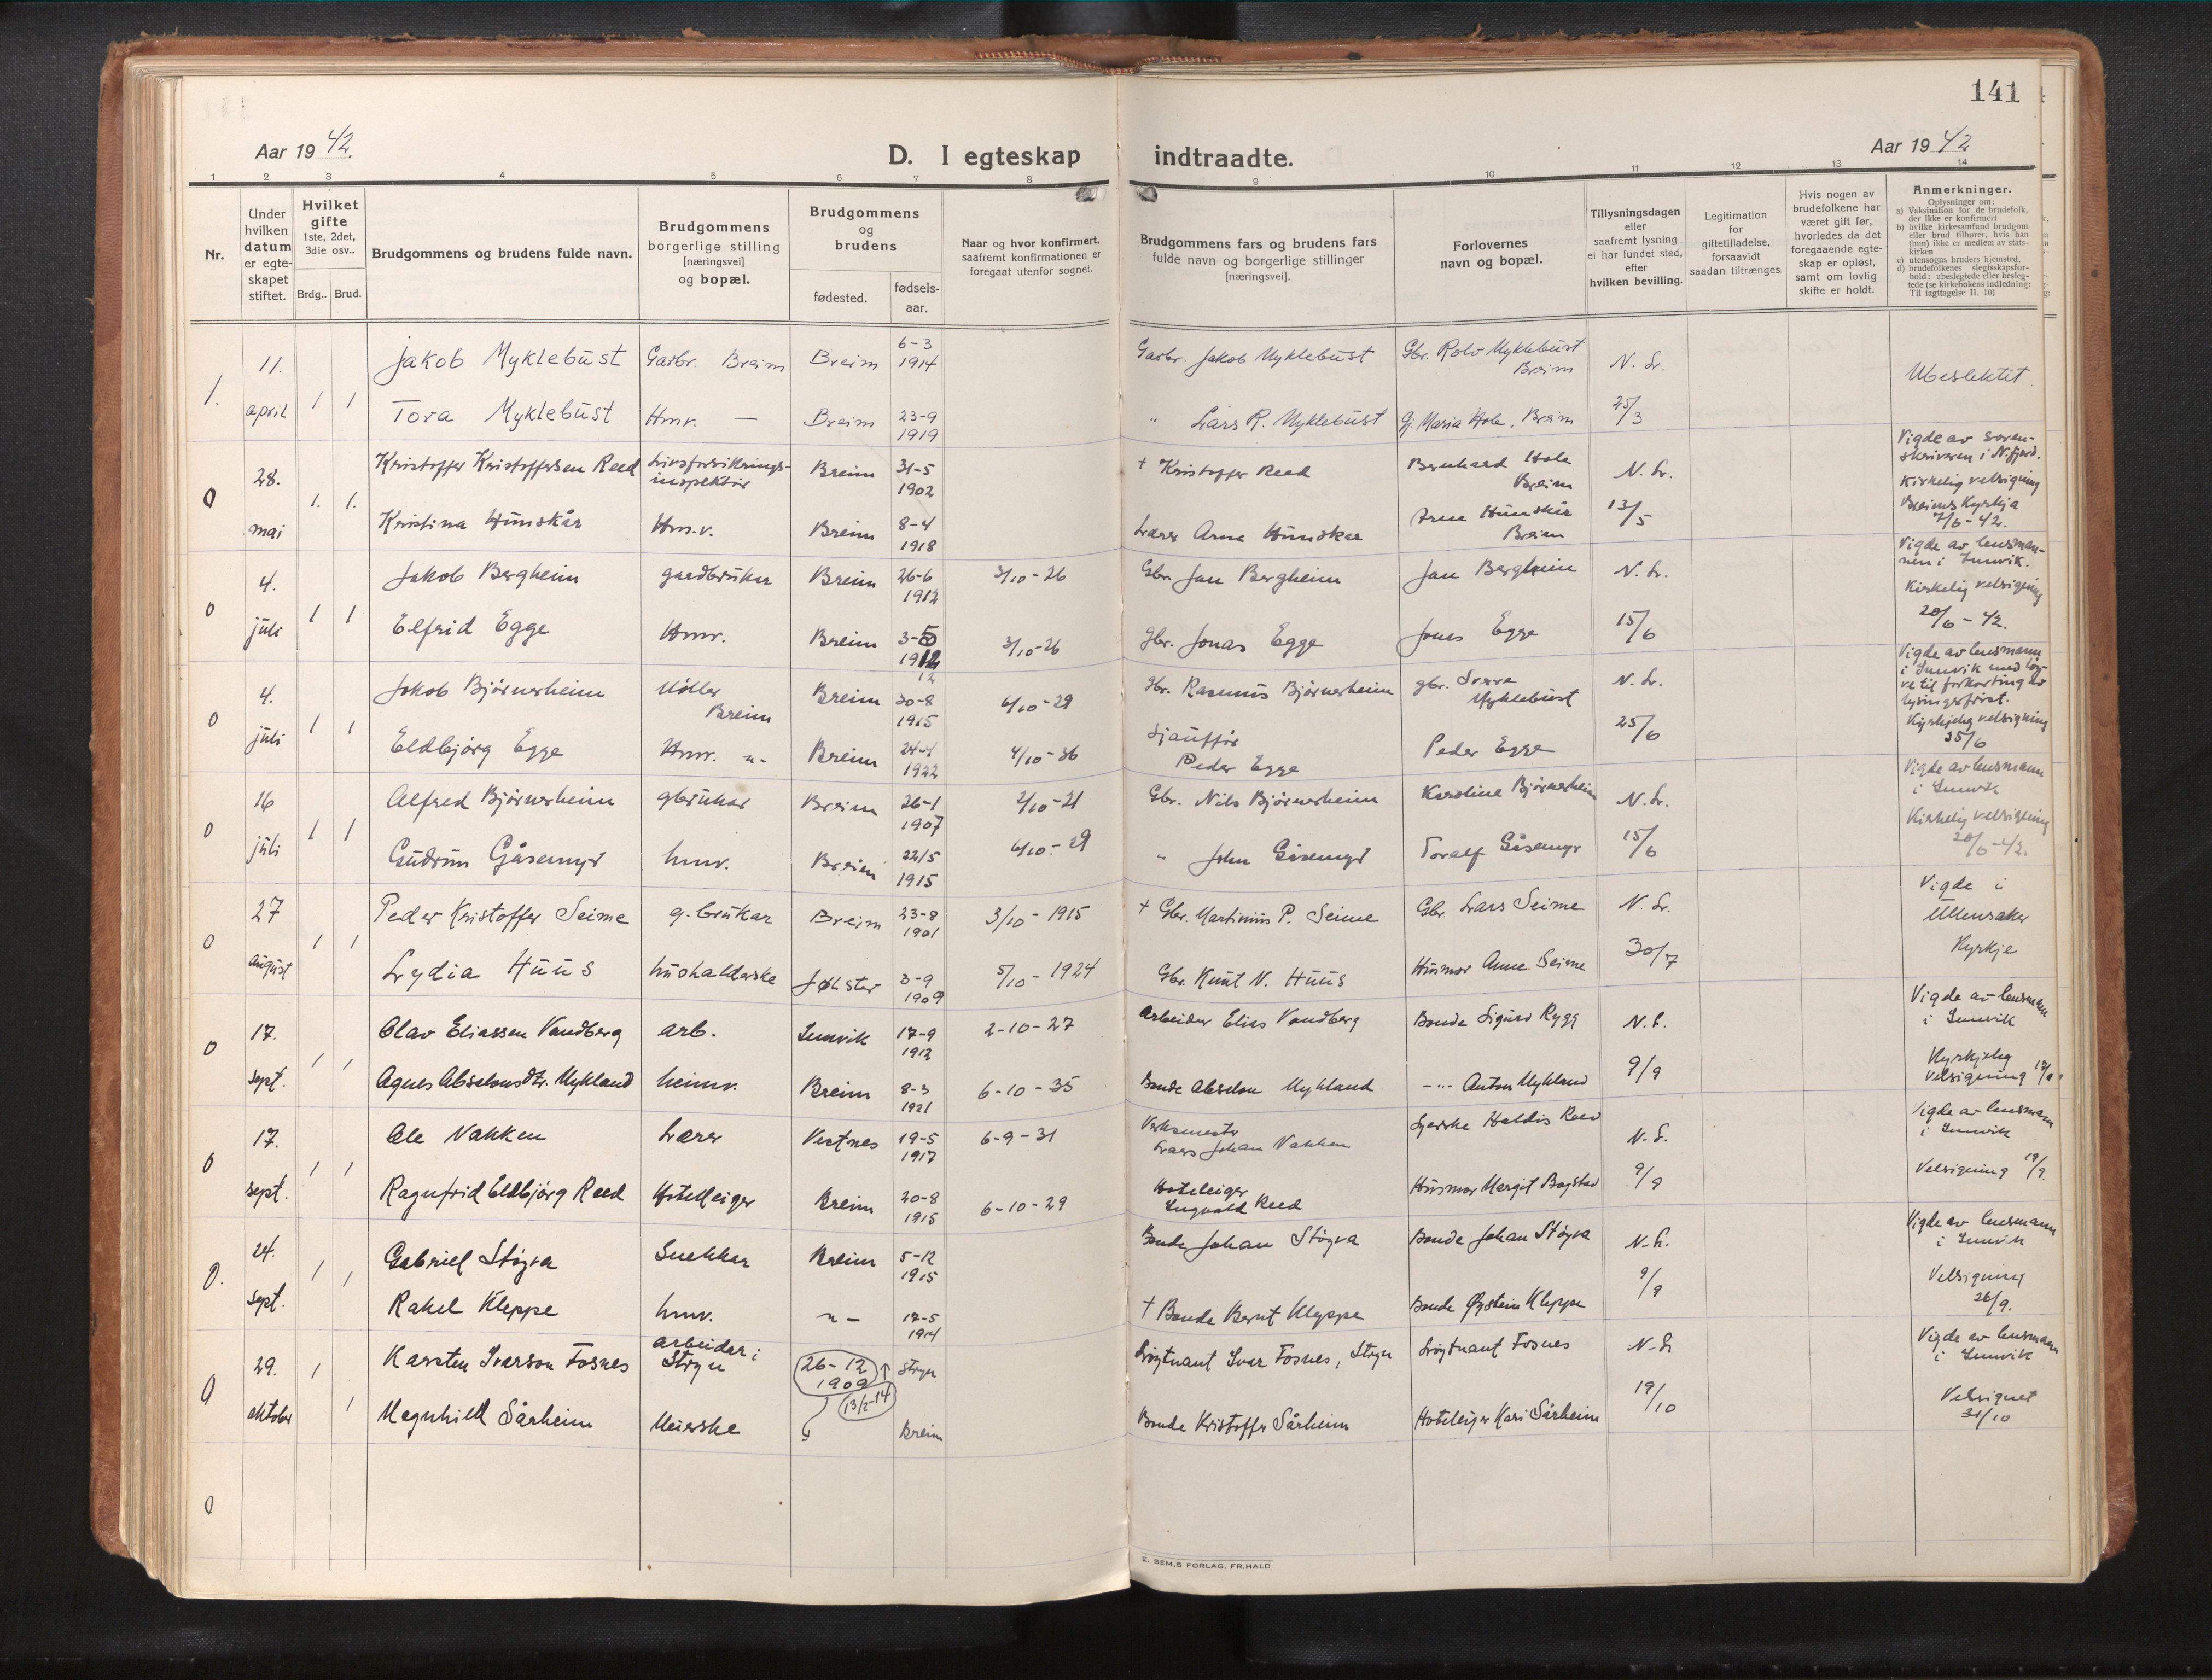 141
Aar 19 42.
D. I egteskap
indtraadte.
Aar 19 42
1 2 3 4 5 6 7 8 9 10 11 12 13 14
Nr.
Under
hvilken
datum
er egte-
skapet
stiftet.
Hvilket
gifte
1ste, 2det,
3die osv..
Brdg.. Brud.
Brudgommens og brudens fulde navn.
Brudgommens
borgerlige stilling
[næringsvei]
og bopæl.
Brudgommens
og
brudens
fødested.
fødsels-
aar.
Naar og hvor konfirmert,
saafremt konfirmationen er
foregaat utenfor sognet.
Brudgommens fars og brudens fars
fulde navn og borgerlige stillinger
[næringsvei].
Forlovernes
navn og bopæl.
Tillysningsdagen
eller
saafremt lysning
ei har fundet sted,
efter
hvilken bevilling.
Legitimation
for
giftetilladelse,
forsaavidt
saadan tiltrænges.
Hvis nogen av
brudefolkene har
været gift før,
hvorledes da det
foregaaende egte-
skap er opløst,
samt om lovlig
skifte er holdt.
Anmerkninger.
Oplysninger om:
a) Vaksination for de brudefolk,
der ikke er konfirmert
b) hvilke kirkesamfund brudgom
eller brud tilhører, hvis han
(hun) ikke er medlem av stats-
kirken
c) utensogns bruders hjemsted.
d) brudefolkenes slegtsskapsfor-
hold: ubeslegtede eller besleg-
tede (se kirkebokens indledning:
Til iagttagelse II. 10)
1. 11. april 1 1
Jakob Myklebust Garbr. Breim Breim 6-3 1914
Garbr. Jakob Myklebust Gbr. Rolv Myklebust Breim N. Lr.
Ubeslektet
Tora Myklebust Hmv. — Breim 23-9 1919
" Lars R. Myklebust Gj. Maria Hole, Breim 25/3
0 28. mai 1. 1.
Kristoffer Kristoffersen Reed Livsforsikrings-
inspektør Breim 31-5 1902
+ Kristoffer Reed Bernhard Hole Breim N. Lr.
Vigde av soren-
skriveren i N.fjord.
Kirkelig velsigning
Breims Kyrkja
7/6-42.
Kristina Hunskår Hm.v. Breim 8-4 1918
Lærer Arne Hunskår Arne Hunskår Breim 13/5
0 4. juli 1 1
Jakob Bergheim gardbrukar Breim 26-6 1912 3/10-26
Gbr. Jan Bergheim Jan Bergheim N. Lr.
Vigde av lensman-
nen i Innvik.
Kirkelig velsigning
20/6 - 42.
Elfrid Egge Hmv. Breim 3-5 1912 12 3/10-26
Gbr. Jonas Egge Jonas Egge 15/6
0 4. juli 1 1
Jakob Bjørnerheim Møller Breim Breim 30-8 1915 6/10-29
Gbr. Rasmus Bjørnerheim gbr. Sverre Myklebust N. Lr.
Vigde av lensmann
i Innvik med løy-
ve til forkorting av
lysingsfrist.
Kyrkjeleg velsigning
25/6
Eldbjørg Egge Hmv. -"- Breim 24-4 1922 4/10-36
Sjauffør
Peder Egge Peder Egge 25/6
0 16 juli 1 1
Alfred Bjørnerheim gbrukar Breim 26-1 1907 2/10-21
Gbr. Nils Bjørnerheim Karoline Bjørnerheim N. Lr.
Vigde av lensmann
i Innvik
Kirkelig velsigning
20/6-42.
Gudrun Gåsemyr hmv. Breim 22/5 1915 6/10-29
" John Gåsemyr Toralf Gåsemyr 15/6
0 27 august 1 1
Peder Kristoffer Seime g.brukar Breim 23-8 1901 3/10-1915
+ Gbr. Martinius P. Seime Gbr. Lars Seime N. Lr.
Vigde i
Ullensaker
Kyrkje
Lydia Huus hushalderske Jølster 3-9 1909 5/10-1924
Gbr. Knut N. Huus Husmor Anne Seime 30/7
0 17. sept. 1 1
Olav Eliassen Vandberg arb. Innvik 17-9 1912 2-10-27
Arbeider Elias Vandberg Bonde Sigurd Rygg N. L.
Vigde av lensmann
i Innvik
Kyrkjeleg
velsigning 19/9
Agnes Absalonsdtr. Mykland heimv. Breim 8-3 1921 6-10-35
Bonde Absalon Mykland -"- Anton Mykland 9/9
0 17. sept. 1 1
Ole Nakken Lærer Vestnes 19-5 1917 6-9-31
Verksmester
Lars Johan Nakken Haldis Reed N. L.
Vigde av lensmann
i Innvik
Velsigning 19/9.
Ragnfrid Eldbjørg Reed Hotelleiger Breim 20-8 1915 6-10-29
Hoteleiger
Ingvald Reed Husmor Margit Bogstad 9/9
0. 24. sept. 1 1
Gabriel Støyva Snekkar Breim 5-12 1915
Bonde Johan Støyva Bonde Johan Støyva N. L.
Vigde av lensmann
i Innvik
Velsigning
26/9.
Rakel Kleppe hmv. -"- 17-5 1914
+ Bonde Bernt Kleppe Bonde Øystein Kleppe 9/9
0 29. oktober 1 1
Karsten Ivarson Fosnes arbeidar i
Stryn 26-12 1909 Stryn
Løytnant Ivar Fosnes, Stryn Løytnant Fosnes N. Lr
Vigde av lensmann
i Innvik
Velsignet
31/10
Magnhild Sårheim Meierske 13/2-14 Breim
Bonde Kristoffer Sårheim Hoteleiger Kari Sårheim 19/10
0
E. SEM.S FORLAG. FR.HALD